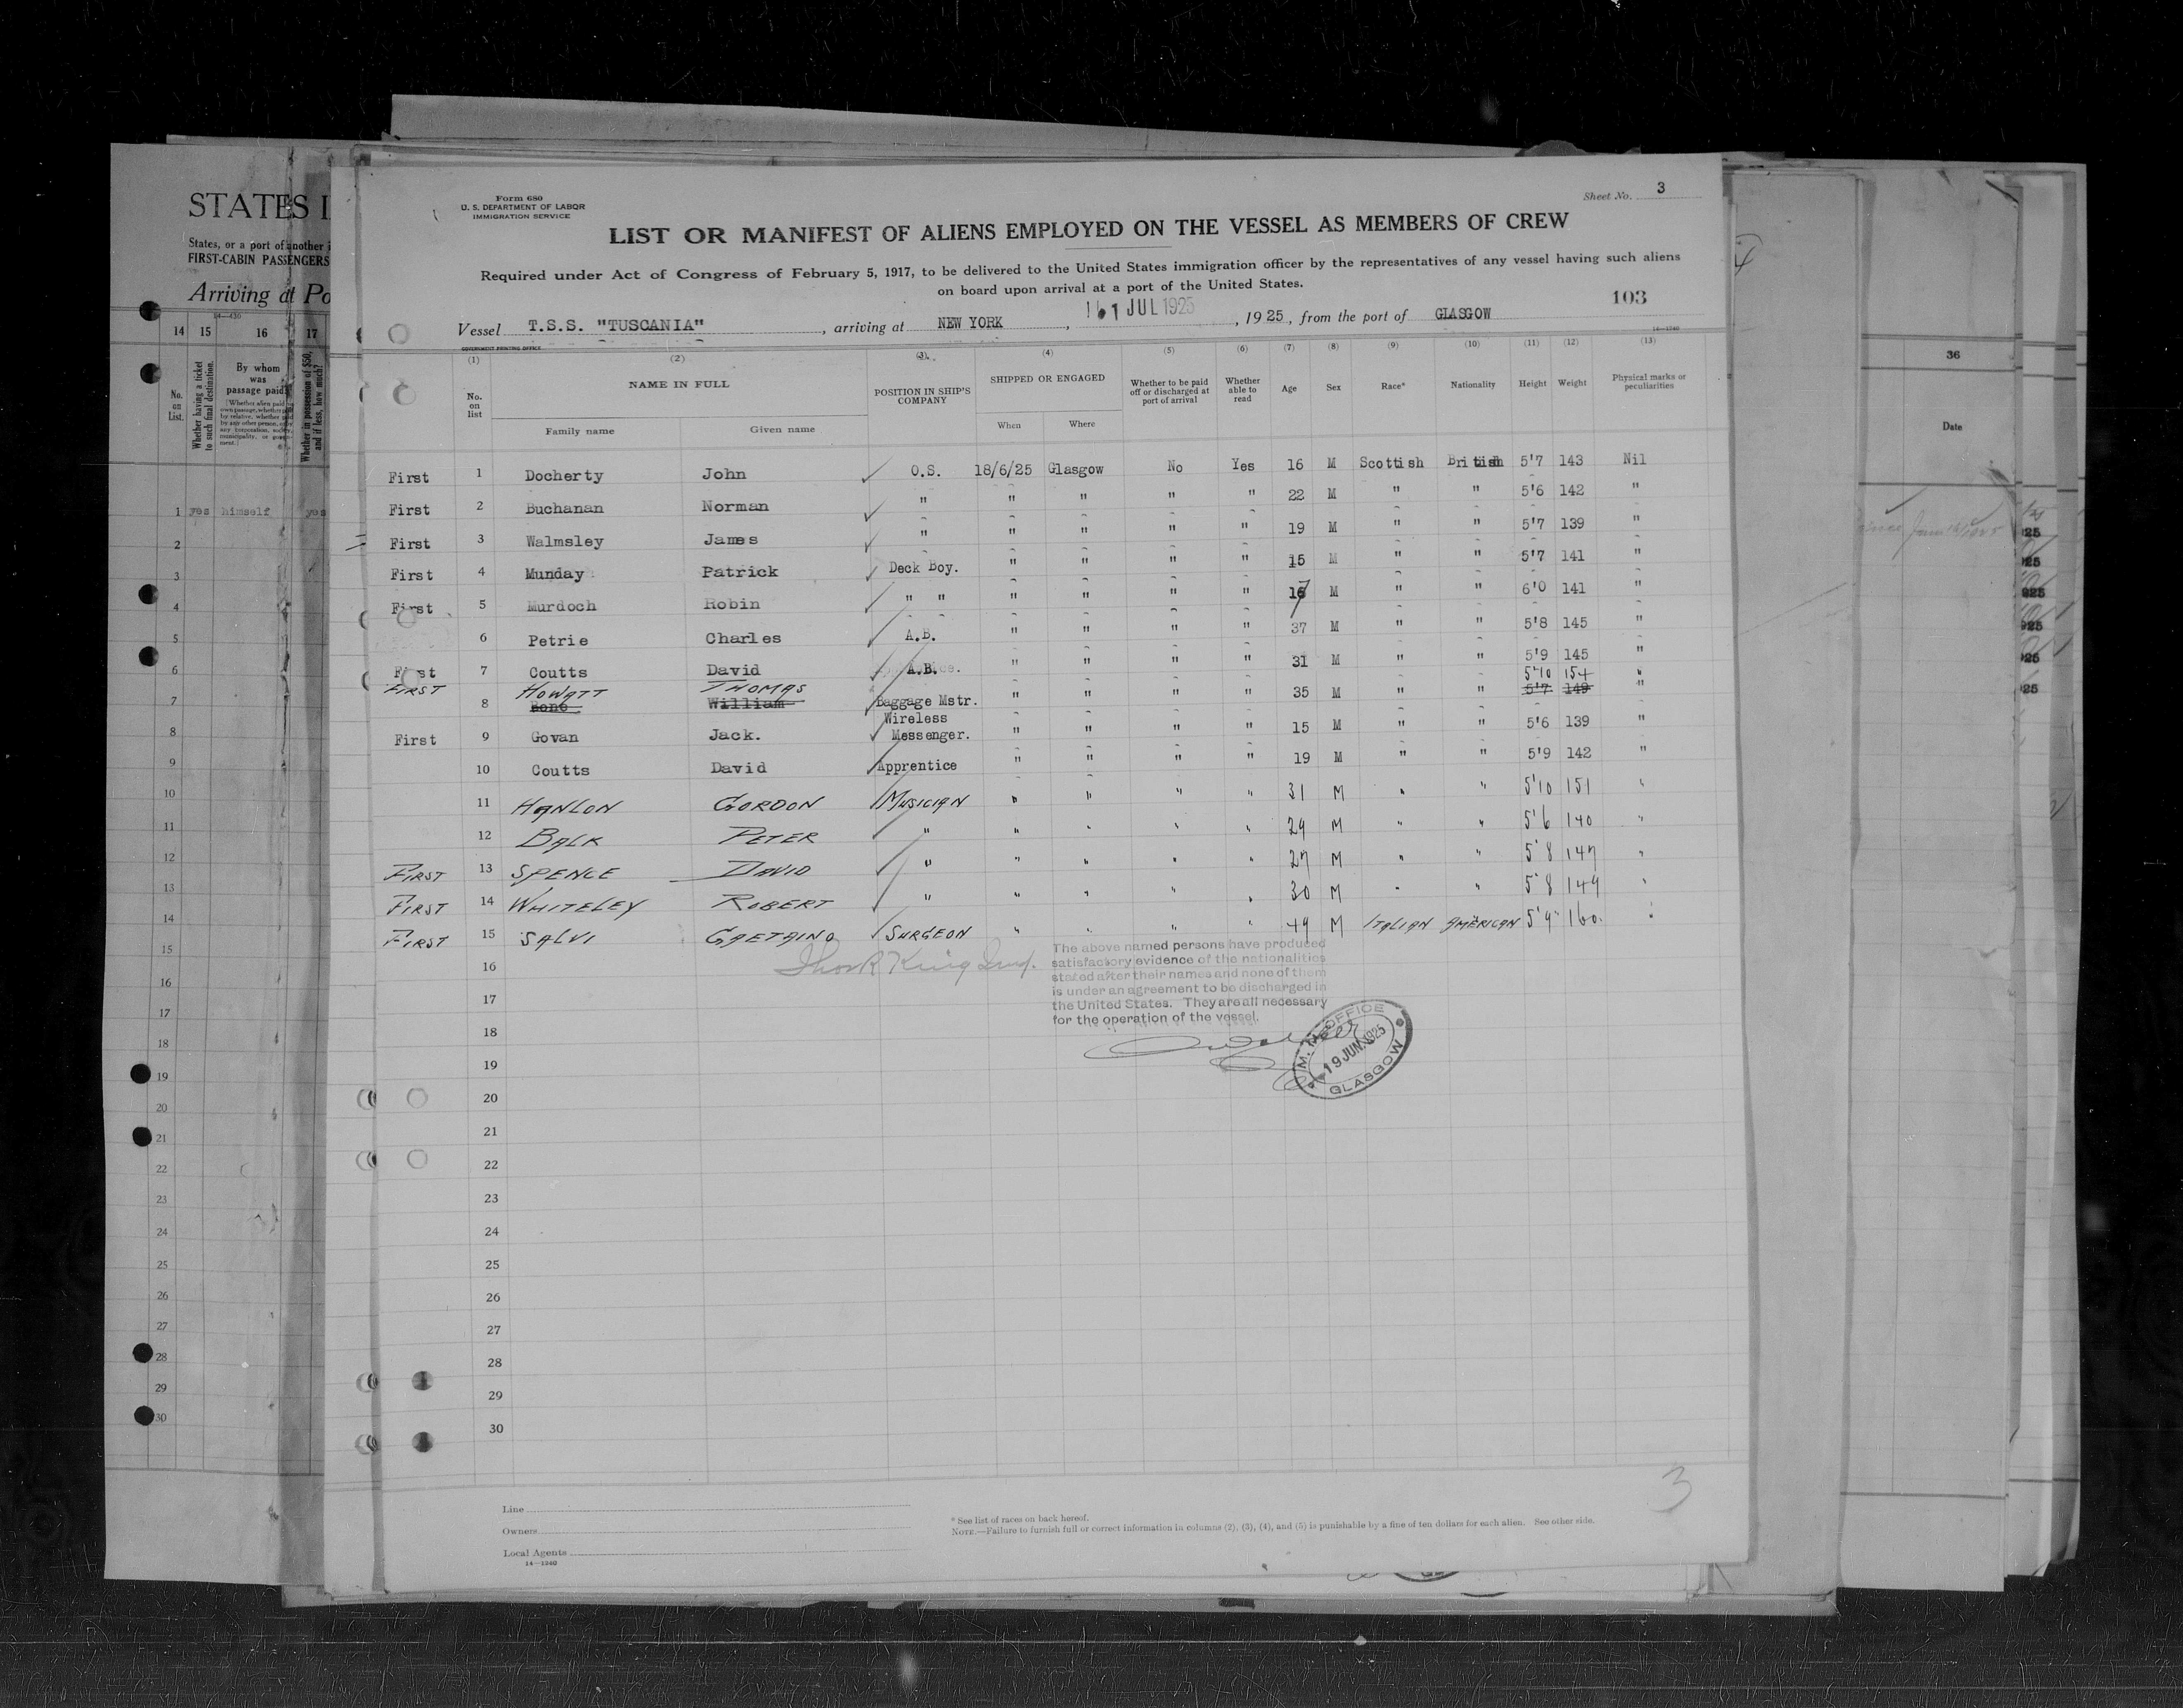 STATES I
States, or a port of another i
FIRST-CABIN PASSENGERS
Arriving at Po
14 15 16 17
No. on List.
Whether having a ticket to such final destination.
By whom was passage paid?
Whether in possession of $50, and if less, how much?
1 yes himself yes
2
3
4
5
6
7
8
9
10
11
12
13
14
15
16
17
18
19
20
21
22
23
24
25
26
27
28
29
30
Form 680
U. S. DEPARTMENT OF LABOR
IMMIGRATION SERVICE
Sheet No. 3
LIST OR MANIFEST OF ALIENS EMPLOYED ON THE VESSEL AS MEMBERS OF CREW
Required under Act of Congress of February 5, 1917, to be delivered to the United States immigration officer by the representatives of any vessel having such aliens
on board upon arrival at a port of the United States.
103
Vessel T.S.S. "TUSCANIA", arriving at NEW YORK, 1 JUL 1925, 1925, from the port of GLASGOW
14—1240
GOVERNMENT PRINTING OFFICE
(1) (2) (3) (4) (5) (6) (7) (8) (9) (10) (11) (12) (13)
No. on list
NAME IN FULL
Family name Given name
POSITION IN SHIP'S COMPANY
SHIPPED OR ENGAGED
When Where
Whether to be paid off or discharged at port of arrival
Whether able to read
Age Sex Race* Nationality Height Weight
Physical marks or peculiarities
First 1 Docherty John O.S. 18/6/25 Glasgow No Yes 16 M Scottish British 5'7 143 Nil
First 2 Buchanan Norman " " " " " 22 M " " 5'6 142 "
First 3 Walmsley James " " " " " 19 M " " 5'7 139 "
First 4 Munday Patrick Deck Boy. " " " " 15 M " " 5'7 141 "
First 5 Murdoch Robin " " " " " " 17 M " " 6'0 141 "
6 Petrie Charles A.B. " " " " 37 M " " 5'8 145 "
First 7 Coutts David A.B. " " " " 31 M " " 5'9 145 "
FIRST HOWATT THOMAS 5'10 154 "
8 Bone William Baggage Mstr. " " " " 35 M " " 5'7 149 "
First 9 Govan Jack. Wireless Messenger. " " " " 15 M " " 5'6 139 "
10 Coutts David Apprentice " " " " 19 M " " 5'9 142 "
11 HANLON GORDON MUSICIAN " " " " 31 M " " 5'10 151 "
12 BALK PETER " " " " " 29 M " " 5'6 140 "
FIRST 13 SPENCE DAVID " " " " " 27 M " " 5'8 147 "
FIRST 14 WHITELEY ROBERT " " " " " 30 M " " 5'8 149 "
FIRST 15 SALVI GAETAINO SURGEON " " " " 49 M ITALIAN AMERICAN 5'9" 160. "
16
17
18
19
20
21
22
23
24
25
26
27
28
29
30
The above named persons have produced
satisfactory evidence of the nationalities
stated after their names and none of them
is under an agreement to be discharged in
the United States. They are all necessary
for the operation of the vessel.
M. M. OFFICE
19 JUN. 1925
GLASGOW
3
Line
Owners
Local Agents
14—1240
* See list of races on back hereof.
NOTE.—Failure to furnish full or correct information in columns (2), (3), (4), and (5) is punishable by a fine of ten dollars for each alien. See other side.
36
Date